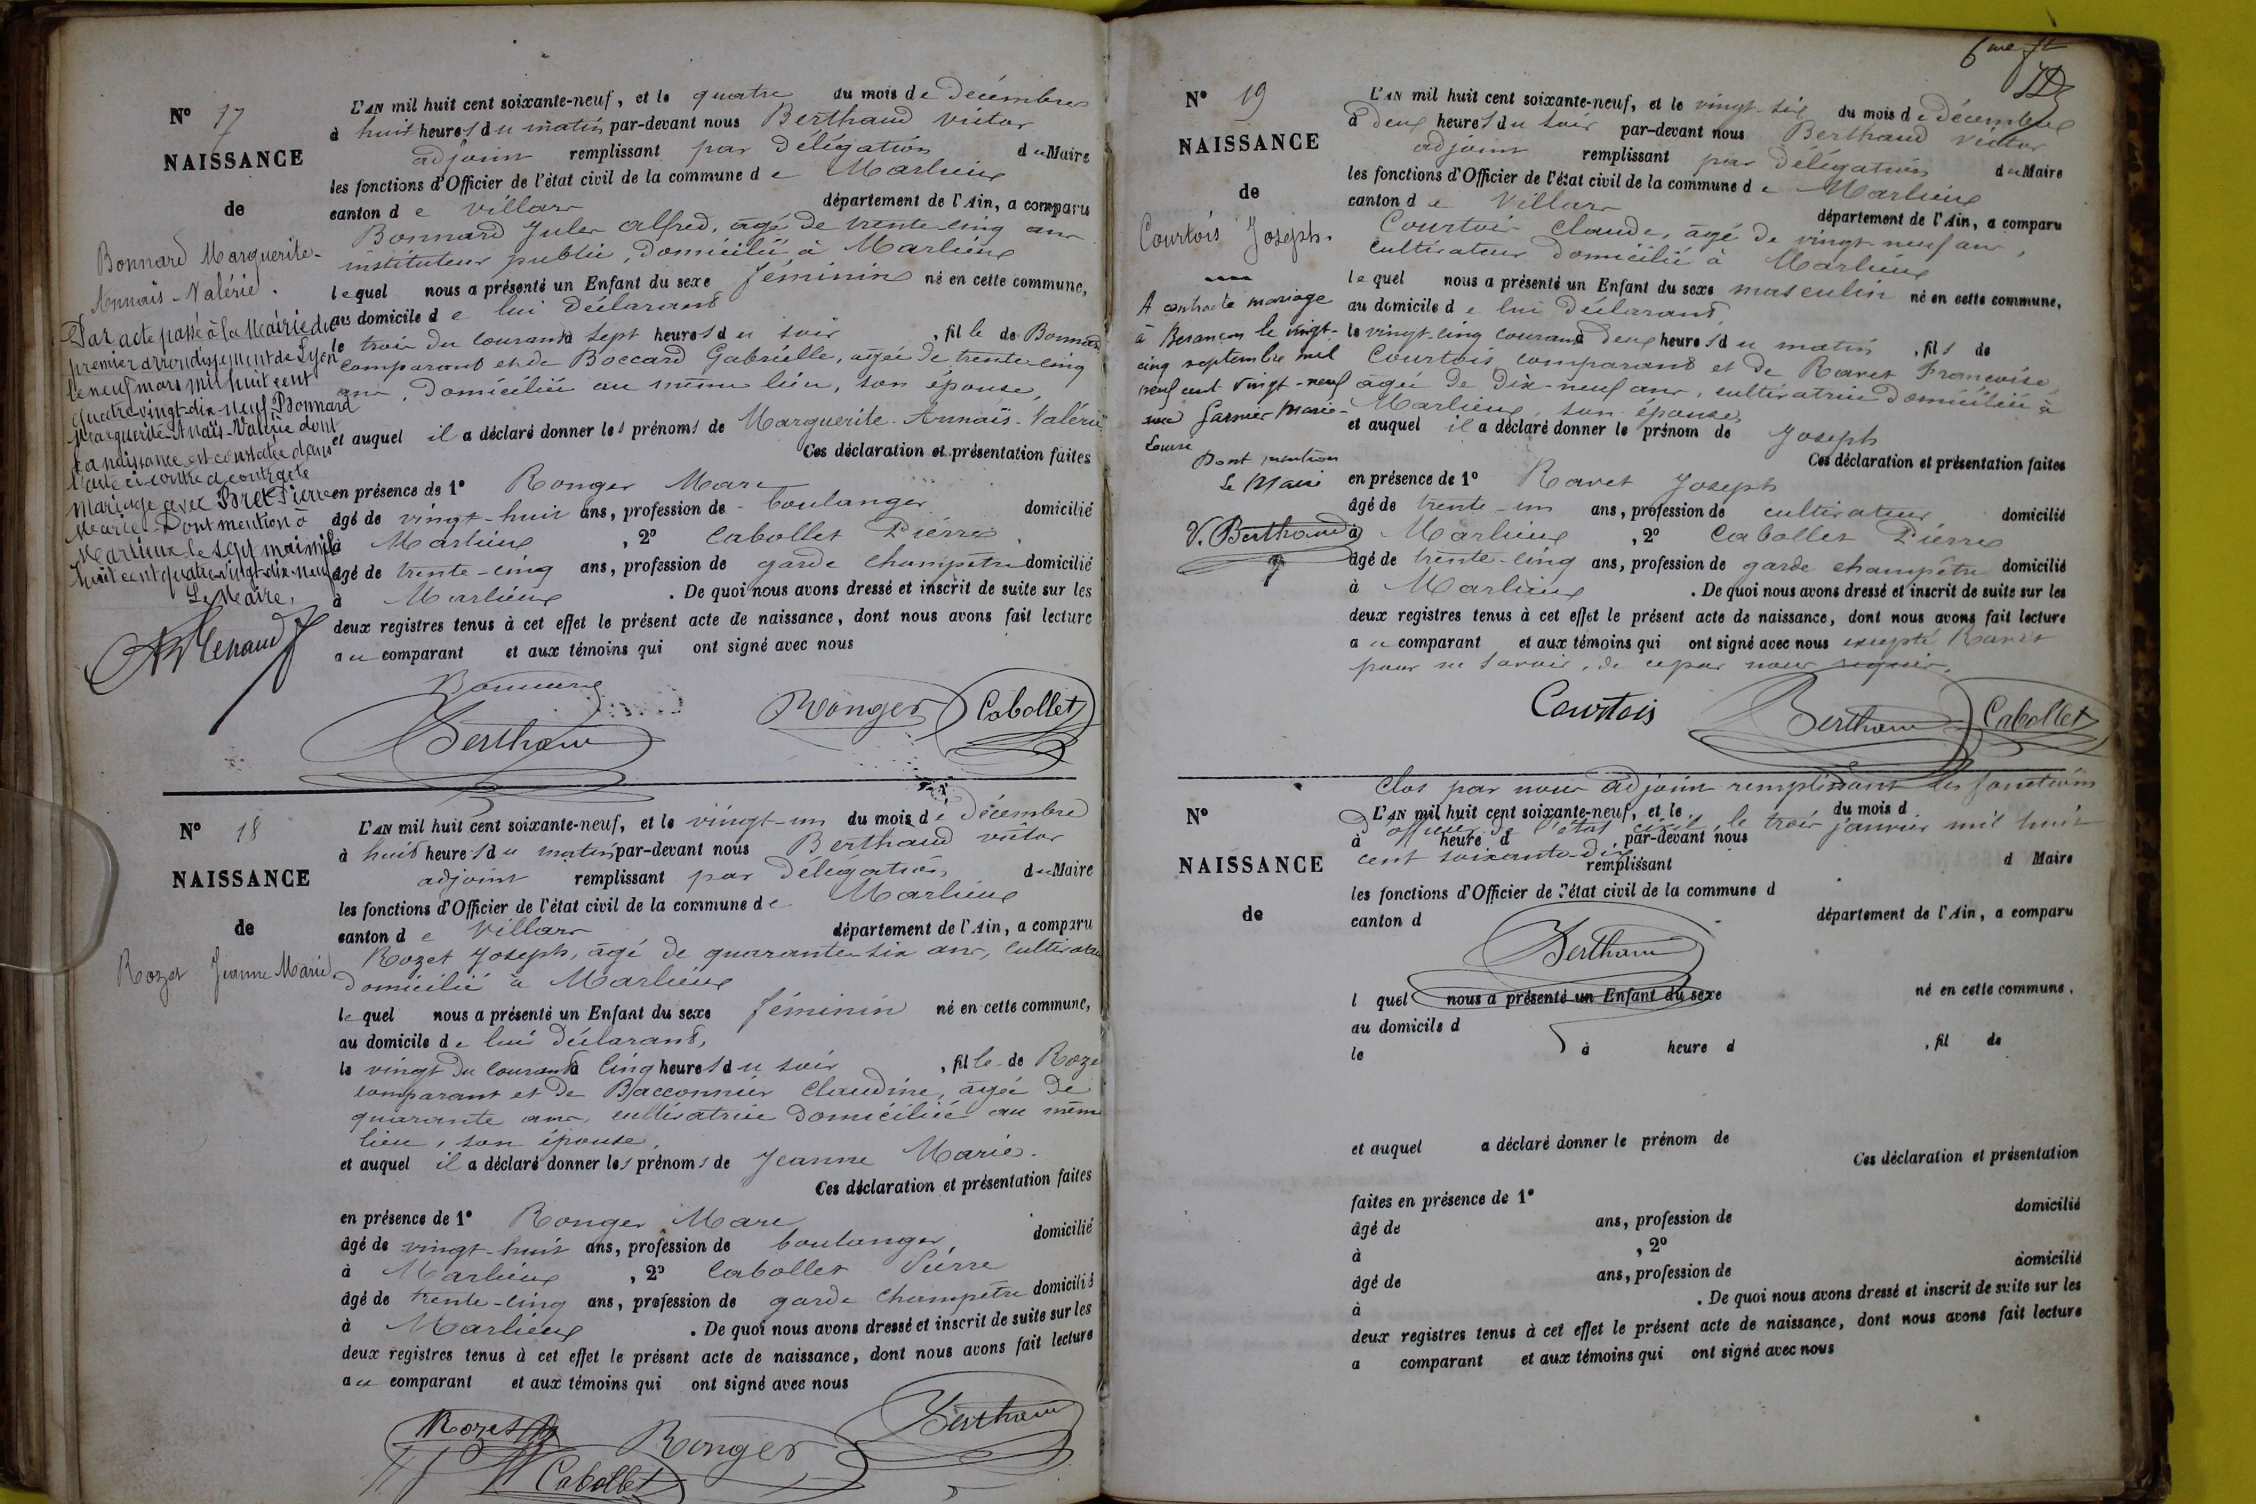 N° 17
NAISSANCE
de
Bonnard Marguerite-
Annaïs-Valérie.
Par acte passé à la Mairie du
premier arrondissement de Lyon
le neuf mars mil huit cent
quatre vingt-dix-neuf Bonnard
Marguerite-Anaïs-Valérie dont
la naissance est constatée dans
l'acte ci contre a contracté
mariage avec Bret Pierre
Marie. Dont mention à
Marlieux le sept mai mil
huit cent quatre vingt-dix-neuf
Le Maire,
L'AN mil huit cent soixante-neuf, et le quatre du mois de Décembre
à huit heures du matin par-devant nous Berthaud victor
adjoint remplissant par Délégation du Maire
les fonctions d'Officier de l'état civil de la commune de Marlieux
canton de Villars département de l'Ain, a comparu
Bonnard Jules Alfred, âgé de trente-cinq ans
instituteur public, Domicilié à Marlieux
lequel nous a présenté un Enfant du sexe féminin né en cette commune,
au domicile de lui Déclarant
le trois du courant à sept heures du soir, fille de Bonnard
comparant et de Boccard Gabrielle, âgée de trente-cinq
ans, Domiciliée au même lieu, son épouse,
et auquel il a déclaré donner les prénoms de Marguerite-Annaïs-Valérie
Ces déclaration et présentation faites
en présence de 1° Ronger Marc
âgé de vingt-huit ans, profession de boulanger domicilié
à Marlieux, 2° Cabollet Pierre
âgé de trente-cinq ans, profession de garde champêtre domicilié
à Marlieux. De quoi nous avons dressé et inscrit de suite sur les
deux registres tenus à cet effet le présent acte de naissance, dont nous avons fait lecture
au comparant et aux témoins qui ont signé avec nous
Bonnard
Berthaud
Ronger
Cabollet
N° 18
NAISSANCE
de
Rozet Jeanne Marie
L'AN mil huit cent soixante-neuf, et le vingt-un du mois de Décembre
à huit heures du matin par-devant nous Berthaud victor
adjoint remplissant par Délégation du Maire
les fonctions d'Officier de l'état civil de la commune de Marlieux
canton de Villars département de l'Ain, a comparu
Rozet Joseph, âgé de quarante-six ans, cultivateur
Domicilié à Marlieux
lequel nous a présenté un Enfant du sexe féminin né en cette commune,
au domicile de lui Déclarant,
le vingt du courant à cinq heures du soir, fille de Roze
comparant et de Bacconnier Claudine, âgée de
quarante ans, cultivatrice Domiciliée au même
lieu, son épouse,
et auquel il a déclaré donner les prénoms de Jeanne Marie.
Ces déclaration et présentation faites
en présence de 1° Ronger Marc
âgé de vingt-huit ans, profession de boulanger domicilié
à Marlieux, 2° Cabollet Pierre
âgé de trente-cinq ans, profession de garde champêtre domicilié
à Marlieux. De quoi nous avons dressé et inscrit de suite sur les
deux registres tenus à cet effet le présent acte de naissance, dont nous avons fait lecture
au comparant et aux témoins qui ont signé avec nous
Rozet
Ronger
Berthaud
Cabollet
6me ft
N° 19
NAISSANCE
de
Courtois Joseph.
A contracté mariage
à Besançon le vingt-
cinq septembre mil
neuf cent vingt-neuf
avec Garnier Marie-
Louise
Dont mention
Le Maire
V. Berthaud
L'AN mil huit cent soixante-neuf, et le vingt-six du mois de Décembre
à deux heures du soir par-devant nous Berthaud Victor
adjoint remplissant par Délégation du Maire
les fonctions d'Officier de l'état civil de la commune de Marlieux
canton de Villars département de l'Ain, a comparu
Courtois Claude, âgé de vingt-neuf ans,
cultivateur Domicilié à Marlieux
lequel nous a présenté un Enfant du sexe masculin né en cette commune,
au domicile de lui Déclarant,
le vingt-cinq courant à deux heures du matin, fils de
Courtois comparant et de Ravet Françoise,
âgée de Dix-neuf ans, cultivatrice Domiciliée à
Marlieux, son épouse,
et auquel il a déclaré donner le prénom de Joseph
Ces déclaration et présentation faites
en présence de 1° Ravet Joseph
âgé de trente-un ans, profession de cultivateur domicilié
à Marlieux, 2° Cabollet Pierre
âgé de trente-cinq ans, profession de garde champêtre domicilié
à Marlieux. De quoi nous avons dressé et inscrit de suite sur les
deux registres tenus à cet effet le présent acte de naissance, dont nous avons fait lecture
au comparant et aux témoins qui ont signé avec nous excepté Ravet
pour ne savoir, de ce par nous requis.
Courtois
Berthaud
Cabollet
Clos par nous adjoint remplissant les fonctions
D'officier de l'état civil, le trois janvier mil huit
cent soixante-dix
Berthaud
N°
NAISSANCE
de
L'AN mil huit cent soixante-neuf, et le du mois d
à heure d, par-devant nous
remplissant d Maire
les fonctions d'Officier de l'état civil de la commune d
canton d département de l'Ain, a comparu
l quel nous a présenté un Enfant du sexe né en cette commune,
au domicile d
le à heure d, fil de
et auquel a déclaré donner le prénom de
Ces déclaration et présentation
faites en présence de 1°
domicilié
âgé de ans, profession de
à, 2°
domicilié
âgé de ans, profession de
à. De quoi nous avons dressé et inscrit de suite sur les
deux registres tenus à cet effet le présent acte de naissance, dont nous avons fait lecture
a comparant et aux témoins qui ont signé avec nous